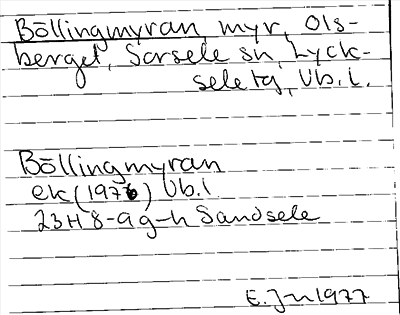 Böllingmyran, myr, Ols-
berget, Sorsele sn, Lyck-
sele tg, Vb. l.
Böllingmyran
ek (1976) Vb. l
23H 8-9 g-h Sandsele
E. Jn 1977